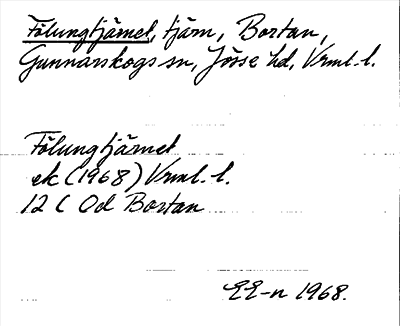 Fölungtjärnet, tjärn, Bortan,
Gunnarskogs sn, Jösse hd, Vrml. l.
Fölungtjärnet
ek (1968) Vrml. l.
12 C Od Bortan
EE-n 1968.